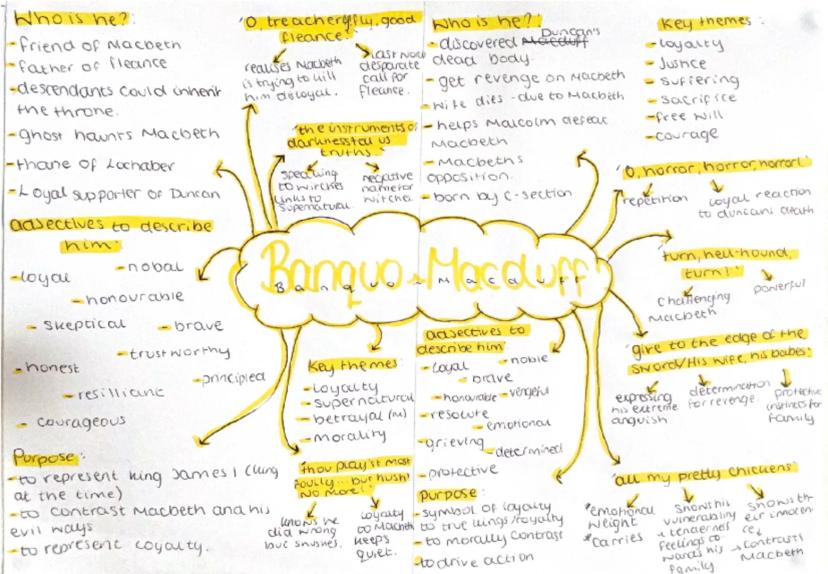 Who is he?
- friend of Macbeth
- father of fleance
- descendants could inherit
the throne.
- ghost haunts Macbeth
- thane of Lochaber
- Loyal supporter of Duncan
adjectives to describe
him:
- loyal
- nobal
- honourable
- skeptical
- brave
- trustworthy
- honest
- principled
- resilliant
- courageous
Purpose:
- to represent king James I (king
at the time)
- to contrast Macbeth and his
evil ways
- to represent loyalty.
'O, treachery! fly, good
fleance!'
realises Macbeth
is trying to kill
him disloyal.
Last words
desparate
call for
fleance.
'the instruments of
darkness tell us
truths'
speaking
to witches
links to
supernatural.
negative
name for
witches
Banquo + Macduff
Banquo + Macduff
Key themes:
- loyalty
- supernatural
- betrayal (M)
- morality
'thou play'st most
foully... but hush!
No more!'
knows he
did wrong
but shushes.
loyalty
to Macbeth
keeps
quiet.
Who is he?
- discovered Duncan's
dead body.
- get revenge on Macbeth
- wife dies - due to Macbeth
- helps Malcolm defeat
Macbeth
- Macbeths
opposition.
- born by C-section
Key themes:
- loyalty
- Justice
- suffering
- sacrifice
- free will
- courage
'O, horror, horror, horror!'
repetition
loyal reaction
to duncans death
'turn, hell-hound,
turn!'
Challenging
Macbeth
powerful
'give to the edge of the
sword/His wife, his babes'
exposing
his extreme
anguish
determination
for revenge.
protective
instincts for
family
'all my pretty chickens'
*emotional
weight
*carries
shows his
vulnerability
+ tenderness
feelings to-
wards his
family
shows th-
eir innocen-
ce
→ contrasts
Macbeth
adjectives to
describe him:
- loyal
- noble
- brave
- honourable
- vengeful
- resolute
- emotional
- grieving
- determined
- protective
Purpose:
- symbol of loyalty
to true kings/royalty
- to morally contrast
- to drive action